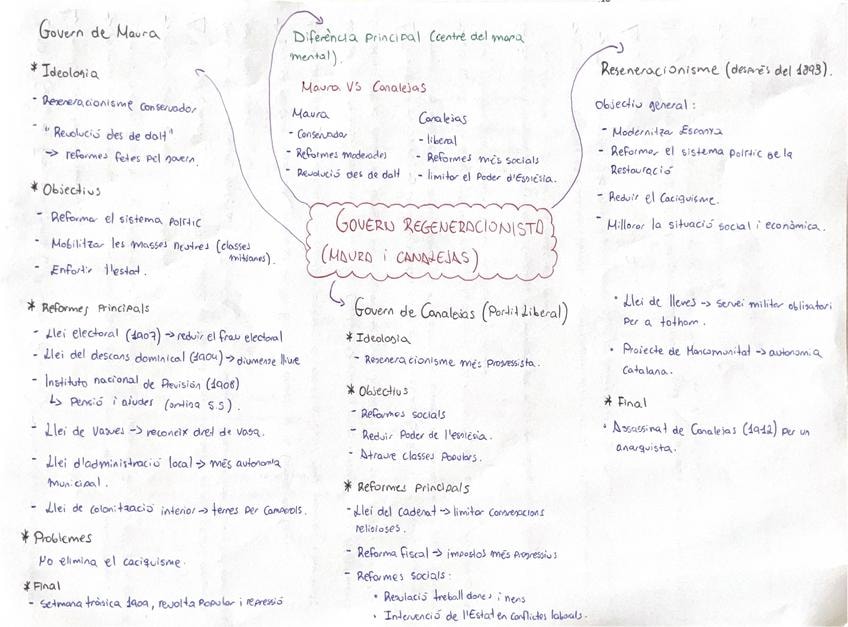 Govern de Maura
* Ideologia
- Regeneracionisme conservador
- "Revolució des de dalt"
-> reformes fetes pel govern.
* Objectius
- Reformar el sistema polític
- Mobilitzar les masses neutres (classes
mitjanes).
- Enfortir l'estat.
* Reformes principals
- Llei electoral (1907) -> reduir el frau electoral
- Llei del descans dominical (1904) -> diumenge lliure
- Instituto nacional de Previsión (1908)
↳ Pensió i ajudes (antiga S.S).
- Llei de vagues -> reconeix dret de vaga.
- Llei d'administració local -> més autonomia
municipal.
- Llei de colonització interior -> terres per camperols.
* Problemes
No elimina el caciquisme.
* Final
- Setmana tràgica 1909, revolta popular i repressió
Diferència principal (centre del mapa
mental).
Maura VS Canalejas
Maura
- Conservador
- Reformes moderades
- Revolució des de dalt
Canalejas
- liberal
- Reformes més socials
- limitar el Poder d'Església.
GOVERN REGENERACIONISTA
(MAURA i CANALEJAS)
Govern de Canalejas (Partit Liberal)
* Ideologia
- Regeneracionisme més progressista.
* Objectius
- Reformes socials
- Reduir Poder de l'església.
- Atraure classes Populars.
* Reformes principals
- Llei del cadenat -> limitar congregacions
religioses.
- Reforma fiscal -> impostos més progressius
- Reformes socials:
• Regulació treball dones i nens
• Intervenció de l'Estat en conflictes laborals.
Regeneracionisme (després del 1898).
Objectiu general:
- Modernitza Espanya
- Reformar el sistema Polític de la
Restauració
- Reduir el Caciquisme.
- Millorar la situació social i econòmica.
• Llei de lleves -> servei militar obligatori
per a tothom.
• Projecte de Mancomunitat -> autonomia
catalana.
* Final
• Assassinat de Canalejas (1912) per un
anarquista.